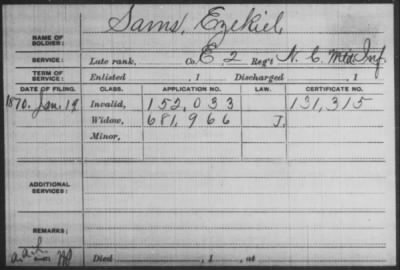 NAME OF SOLDIER: Sams, Ezekiel
SERVICE: Late rank, Co. E 2 Reg't N. C. Mtd Inf.
TERM OF SERVICE: Enlisted , 1 Discharged , 1
DATE OF FILING. CLASS. APPLICATION NO. LAW. CERTIFICATE NO.
1870. Jan. 19 Invalid, 152,033 131,315
Widow, 681,966 J.
Minor,
ADDITIONAL SERVICES:
REMARKS:
Died , 1 , at